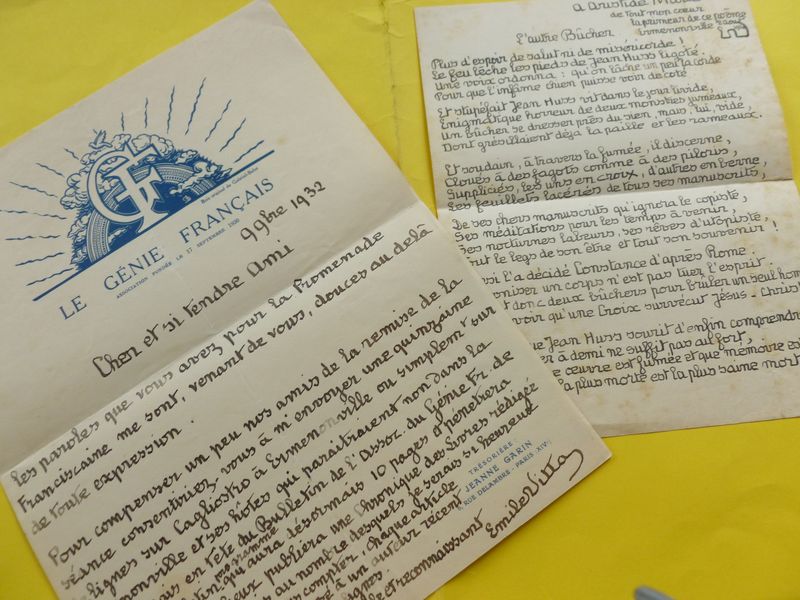 GF
Bois original de Gabriel-Belot
LE GÉNIE FRANÇAIS
ASSOCIATION FONDÉE LE 17 SEPTEMBRE 1926
9 9bre 1932
Cher et si tendre Ami
Les paroles que vous avez pour la Promenade
Franciscaine me sont, venant de vous, douces au delà
de toute expression.
Pour compenser un peu nos amis de la remise de la
séance consentiriez-vous à m'envoyer une quinzaine
de lignes sur Cagliostro à Ermenonville ou simplemt sur
nonville et ses hôtes qui paraîtraient non dans la
mais en tête du Bulletin de l'Assoc. du Génie Fr. de
qui aura désormais 10 pages et
publiera une Chronique des Livres rédigée
au nombre desquels je serais si heureux
compter, chaque article
à un auteur récent
lignes.
et reconnaissant
Emile Villa
TRÉSORIÈRE
JEANNE GARIN
RUE DELAMBRE - PARIS (XIV)
A Aristide
de tout mon cœur
la primeur de ce poème
Ermenonville
L'autre Bûcher
Plus d'espoir de salut ni de miséricorde !
Le feu lèche les pieds de Jean Huss ligoté.
Une voix ordonna : qu'on lâche un peu la corde
Pour que l'infâme chien puisse voir de côté
Et stupéfait Jean Huss vit dans le jour livide,
Enigmatique horreur de deux monstres jumeaux,
Un bûcher se dresser près du sien, mais, lui, vide,
Dont grésillaient déjà la paille et les rameaux.
Et soudain, à travers la fumée, il discerne,
Cloués à des fagots comme à des piloris,
Suppliciés, les uns en croix, d'autres en berne,
Les feuillets lacérés de tous ses manuscrits,
De ses chers manuscrits qu'ignora le copiste,
Ses méditations pour les temps à venir,
Ses nocturnes labeurs, ses rêves d'utopiste,
Tout le legs de son être et tout son souvenir !
Ainsi l'a décidé Constance d'après Rome :
un corps n'est pas tuer l'esprit.
donc deux bûchers pour brûler un seul homme
voir qu'une Croix survécut Jésus-Christ
que Jean Huss sourit d'enfin comprendre
à demi ne suffit pas au fort,
œuvre est fumée et que mémoire est
la plus morte est la plus saine mort